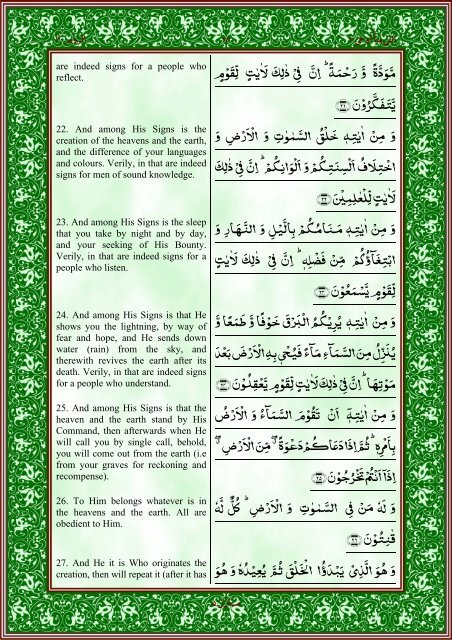 are indeed signs for a people who
reflect.
22. And among His Signs is the
creation of the heavens and the earth,
and the difference of your languages
and colours. Verily, in that are indeed
signs for men of sound knowledge.
23. And among His Signs is the sleep
that you take by night and by day,
and your seeking of His Bounty.
Verily, in that are indeed signs for a
people who listen.
24. And among His Signs is that He
shows you the lightning, by way of
fear and hope, and He sends down
water (rain) from the sky, and
therewith revives the earth after its
death. Verily, in that are indeed signs
for a people who understand.
25. And among His Signs is that the
heaven and the earth stand by His
Command, then afterwards when He
will call you by single call, behold,
you will come out from the earth (i.e
from your graves for reckoning and
recompense).
26. To Him belongs whatever is in
the heavens and the earth. All are
obedient to Him.
27. And He it is Who originates the
creation, then will repeat it (after it has
مَّوَدَّةً وَّ رَحْمَةً ؕ اِنَّ فِیْ ذٰلِكَ لَاٰیٰتٍ لِّقَوْمٍ
یَّتَفَكَّرُوْنَ ﴿۲۱﴾
وَ مِنْ اٰیٰتِهٖ خَلْقُ السَّمٰوٰتِ وَ الْاَرْضِ وَ
اخْتِلَافُ اَلْسِنَتِكُمْ وَ اَلْوَانِكُمْ ؕ اِنَّ فِیْ ذٰلِكَ
لَاٰیٰتٍ لِّلْعٰلِمِیْنَ ﴿۲۲﴾
وَ مِنْ اٰیٰتِهٖ مَنَامُكُمْ بِالَّیْلِ وَ النَّهَارِ وَ
ابْتِغَآؤُكُمْ مِّنْ فَضْلِهٖ ؕ اِنَّ فِیْ ذٰلِكَ لَاٰیٰتٍ
لِّقَوْمٍ یَّسْمَعُوْنَ ﴿۲۳﴾
وَ مِنْ اٰیٰتِهٖ یُرِیْكُمُ الْبَرْقَ خَوْفًا وَّ طَمَعًا وَّ
یُنَزِّلُ مِنَ السَّمَآءِ مَآءً فَیُحْیٖ بِهِ الْاَرْضَ بَعْدَ
مَوْتِهَا ؕ اِنَّ فِیْ ذٰلِكَ لَاٰیٰتٍ لِّقَوْمٍ یَّعْقِلُوْنَ ﴿۲۴﴾
وَ مِنْ اٰیٰتِهٖۤ اَنْ تَقُوْمَ السَّمَآءُ وَ الْاَرْضُ
بِاَمْرِهٖ ؕ ثُمَّ اِذَا دَعَاكُمْ دَعْوَةً ۖۗ مِّنَ الْاَرْضِ ۖۗ
اِذَاۤ اَنْتُمْ تَخْرُجُوْنَ ﴿۲۵﴾
وَ لَهٗ مَنْ فِی السَّمٰوٰتِ وَ الْاَرْضِ ؕ كُلٌّ لَّهٗ
قٰنِتُوْنَ ﴿۲۶﴾
وَ هُوَ الَّذِیْ یَبْدَؤُا الْخَلْقَ ثُمَّ یُعِیْدُهٗ وَ هُوَ